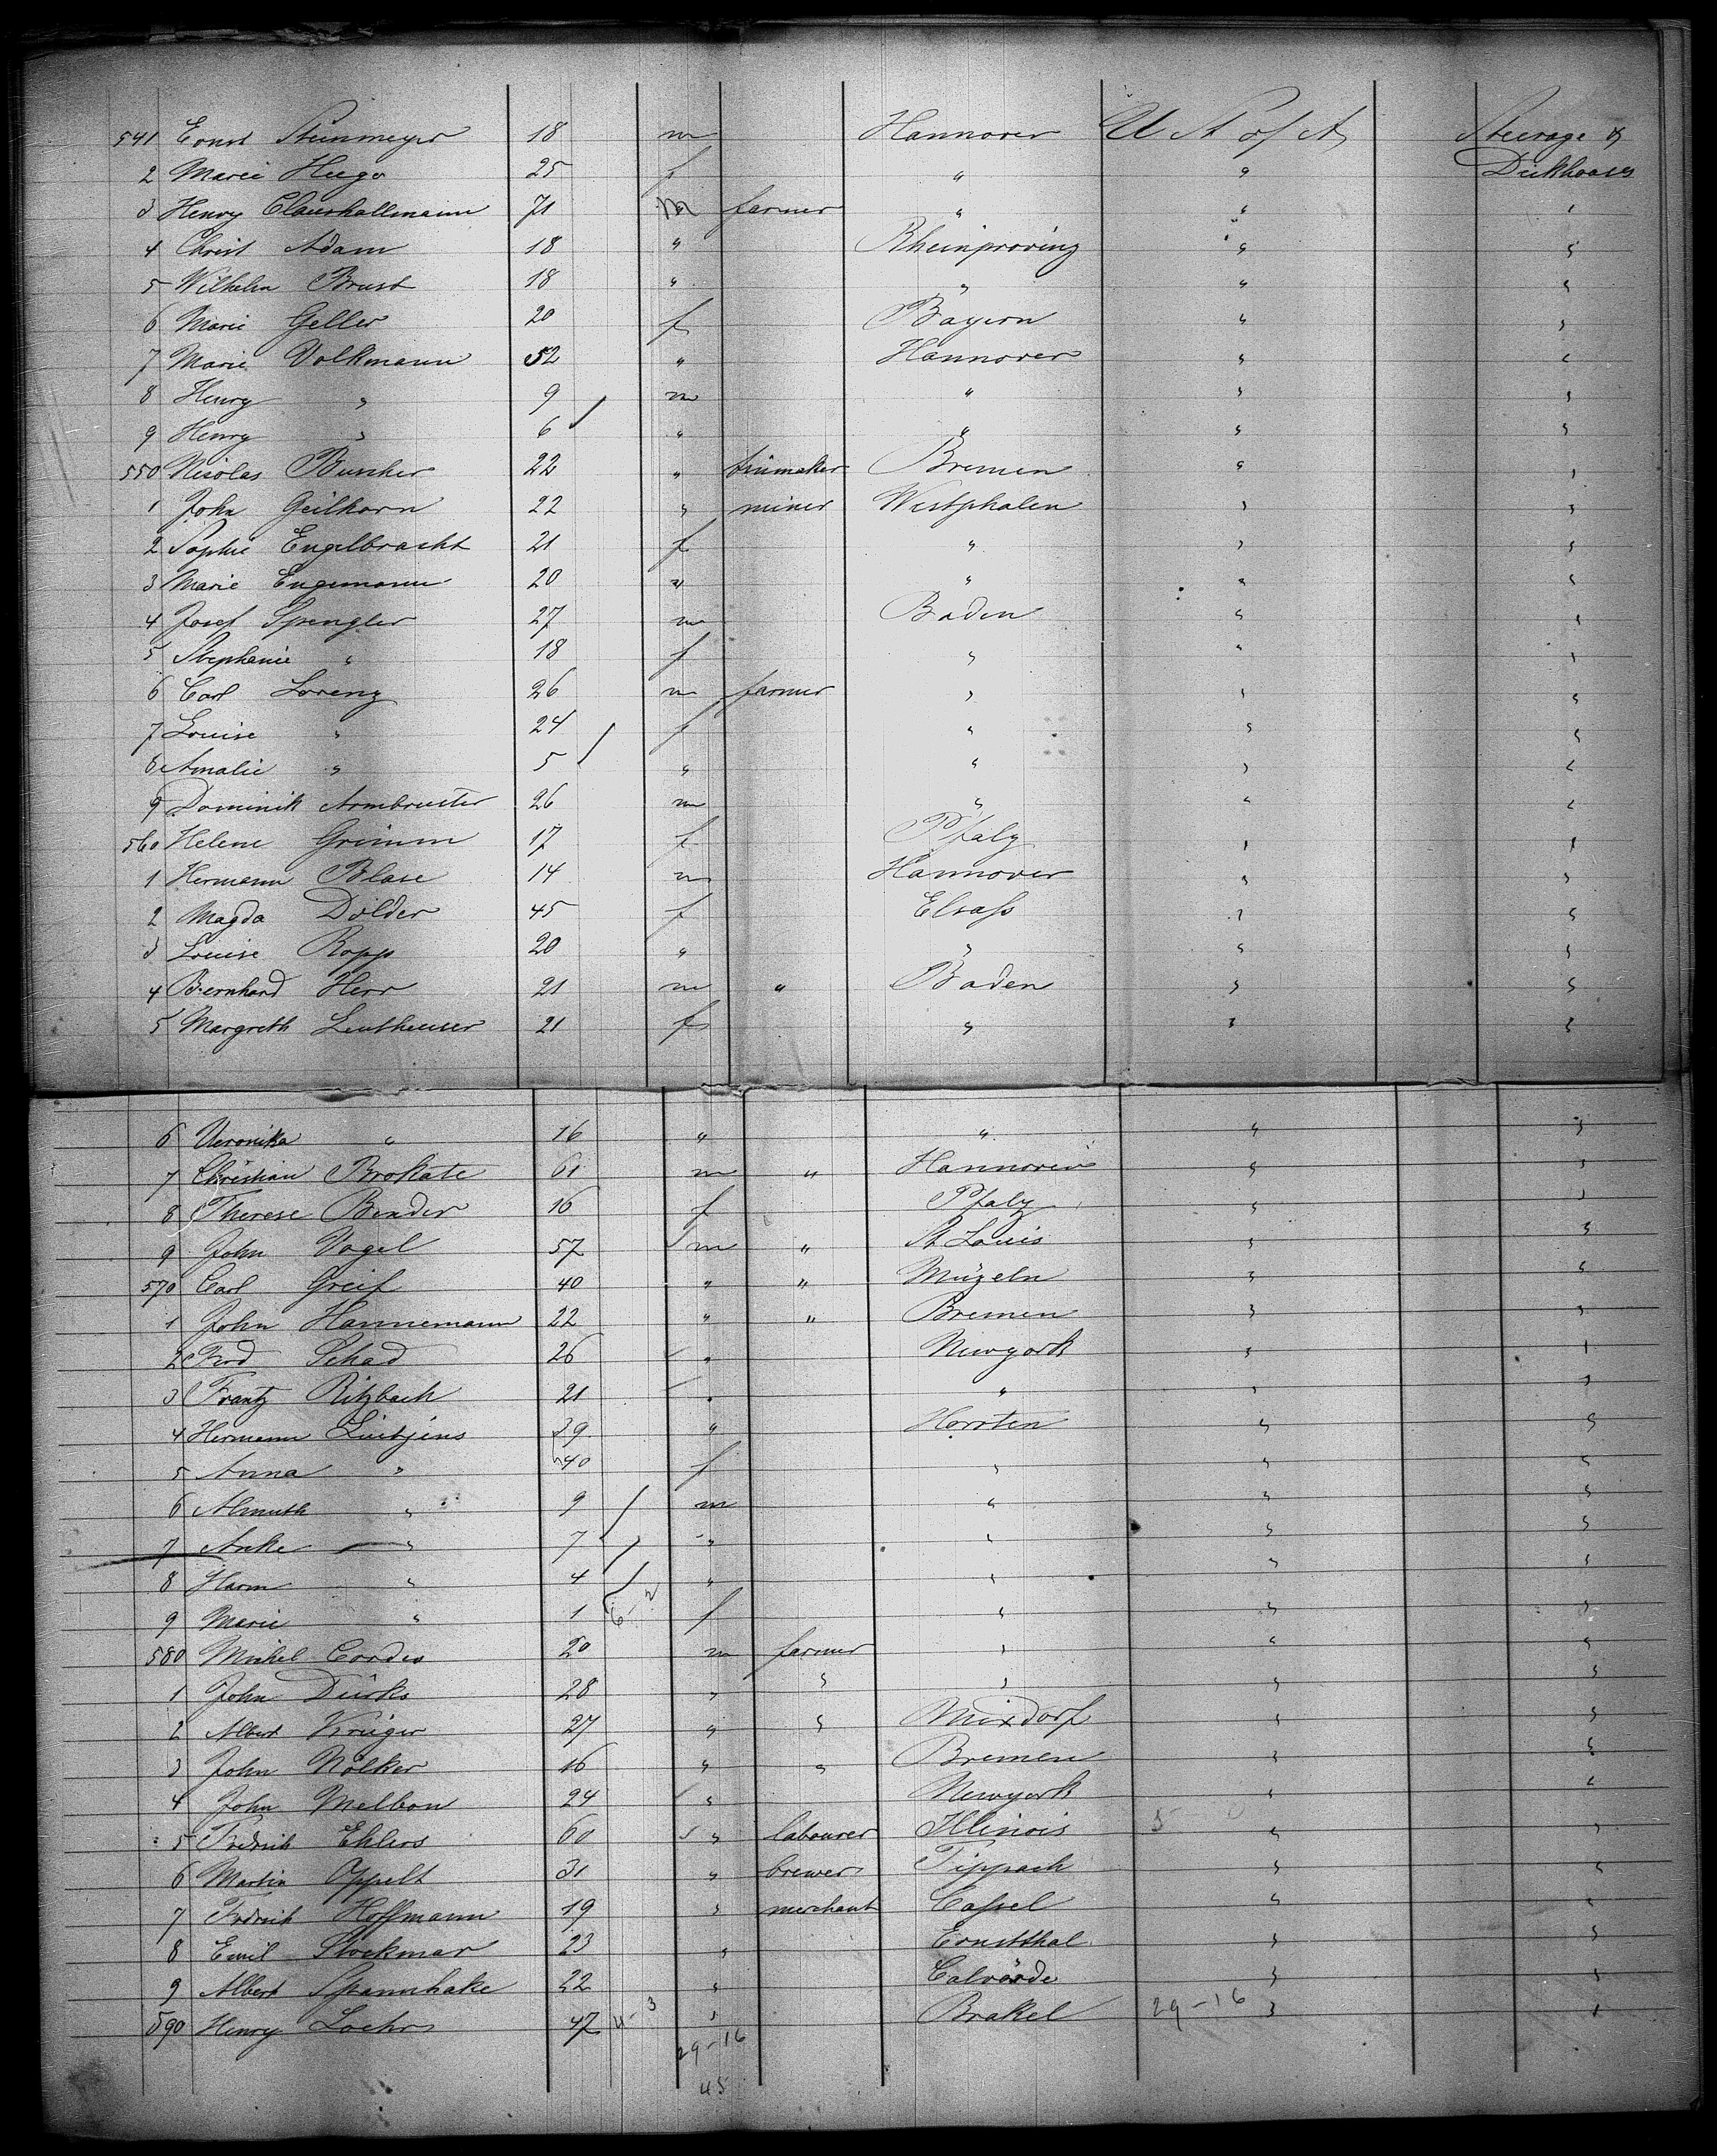 541 Ernst Steinmeyer 18 m Hannover U St of A Steerage &
2 Marie Hugo 25 f " " Deckhouse
3 Henry Claushallmann 71 m farmer " " "
4 Christ Adam 18 " Rheinprovinz " "
5 Wilhelm Brust 18 " " " "
6 Marie Geller 20 f Bayern " "
7 Marie Volkmann 52 " Hannover " "
8 Henry " 9 m " " "
9 Henry " 6 / " " " "
550 Nicolas Bunker 22 " Bremen " "
1 John Geilhorn 22 " miner Westphalen " "
2 Sophie Engelbracht 21 f " " "
3 Marie Engemann 20 " " " "
4 Josef Spengler 27 m Baden " "
5 Stephanie " 18 f " " "
6 Carl Lorenz 26 m farmer " " "
7 Louise " 24 f " " "
8 Amalie " 5 / " " " "
9 Dominik Armbruster 26 m " " "
560 Helene Grimm 17 f Pfalz " "
1 Hermann Blase 14 m Hannover " "
2 Magda Dolder 45 f Elsaß " "
3 Louise Ropp 20 " " " "
4 Bernhard Herr 21 m " Baden " "
5 Margreth Leutheuser 21 f " " "
6 Veronika " 16 " " " "
7 Christian Brokate 61 m " Hannover " "
8 Therese Bender 16 f Pfalz " "
9 John Vogel 57 m " St Louis " "
570 Carl Greif 40 " " Mügeln " "
1 John Hannemann 22 " " Bremen " "
2 Fred Schad 26 " Newyork " "
3 Frantz Ritzbach 21 " " " "
4 Hermann Luitjens 39 " Horsten " "
5 Anna " 40 f " " "
6 Almuth " 9 / m " " "
7 Anke " 7 / " " " "
8 Harm " 4 / " " " "
9 Marie " 1 6-2 f " " "
580 Michel Cordes 20 m farmer " " "
1 John Dirks 28 " " " " "
2 Albert Krüger 27 " " Mixdorf " "
3 John Nölker 16 " " Bremen " "
4 John Melbon 24 " Newyork " "
5 Fredrich Ehlers 60 " labourer Illinois " "
6 Martin Oppelt 31 " brewer Tippach " "
7 Fredrich Hoffmann 19 " merchant Caßel " "
8 Emil Stockmar 23 " Ernstthal " "
9 Albert Spannhake 22 " Calvörde " "
590 Henry Loehrs 42 4-3 " Brakel 29-16 " "
29-16
45